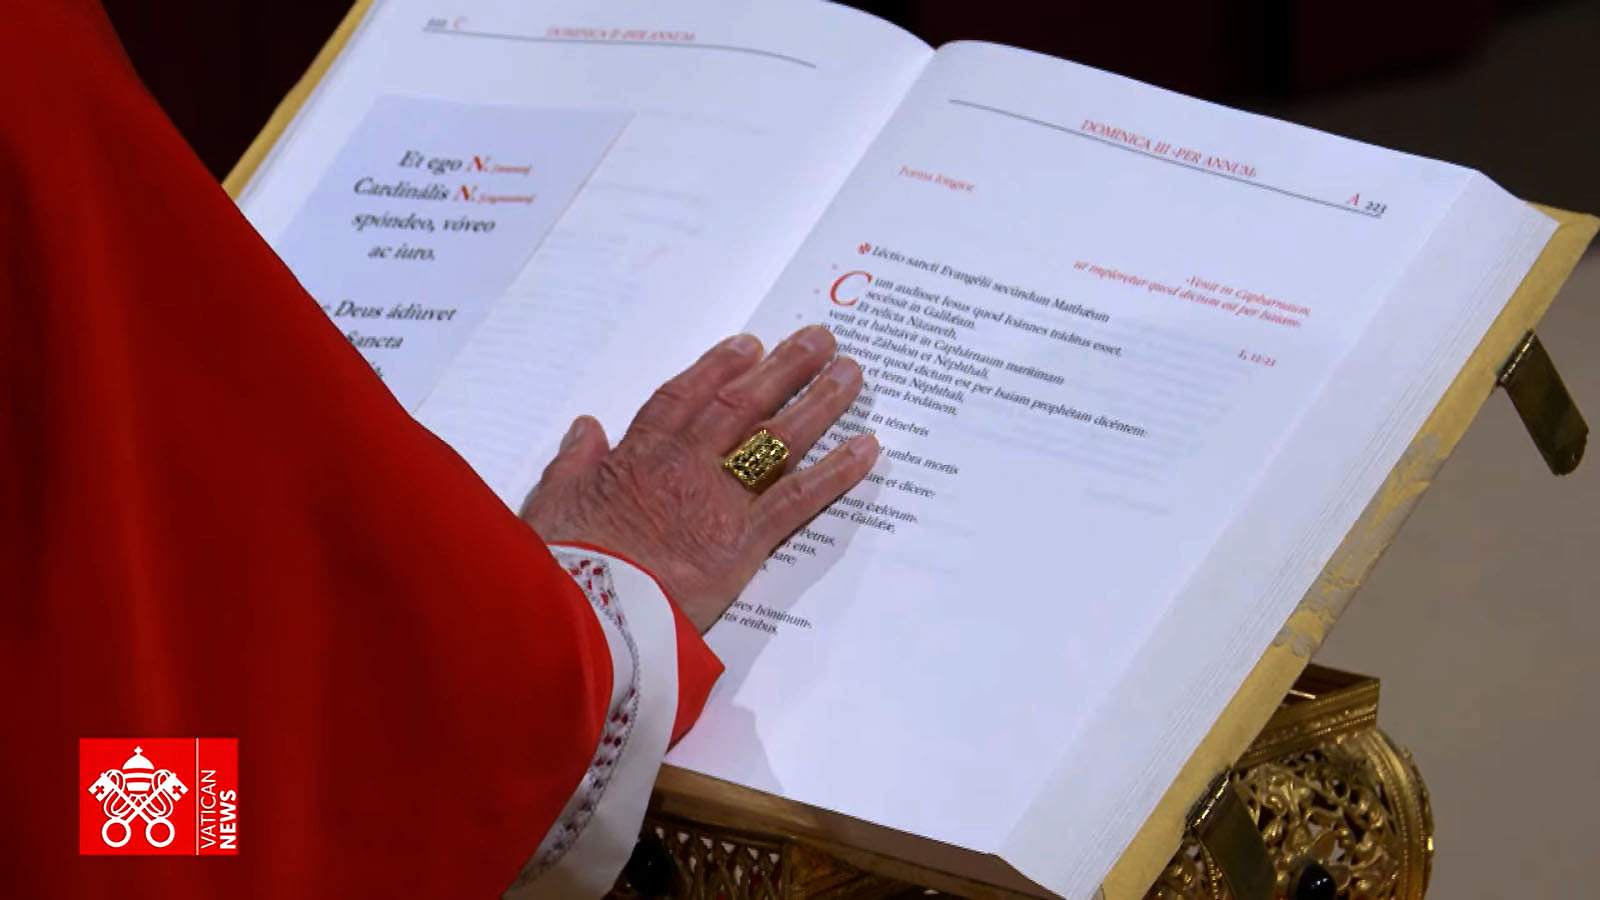 222 C
DOMINICA II «PER ANNUM»
Et ego N. [nomen]
Cardinális N. [cognomen]
spóndeo, vóveo
ac iuro.
Deus ádiuvet
Sancta
DOMINICA III «PER ANNUM»
A 223
Forma longior
«Venit in Capharnaum,
ut impleretur quod dictum est per Isaiam».
✠ Léctio sancti Evangélii secúndum Matthǽum
Cum audísset Iesus quod Ioánnes tráditus esset,
secéssit in Galilǽam.
Et relícta Názareth,
venit et habitávit in Caphárnaum marítimam
in fínibus Zábulon et Néphthali,
quod dictum est per Isaíam prophétam dicéntem:
et terra Néphthali,
trans Iordánem,
in ténebris
umbra mortis
et dícere:
cælórum».
mare Galilǽæ,
Petrus,
eius,
mare;
hóminum».
rétibus,
VATICAN
NEWS